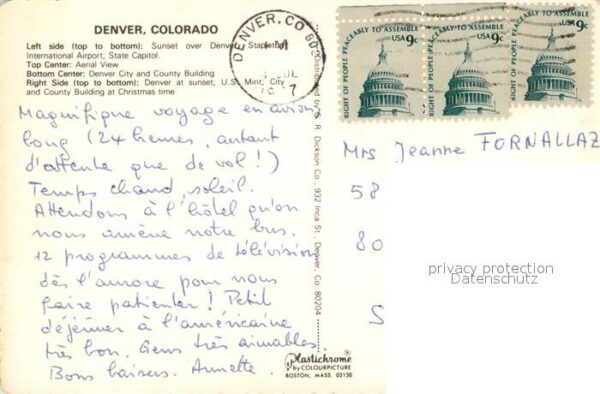 DENVER, COLORADO
Left side (top to bottom): Sunset over Denver, Stapleton
International Airport, State Capitol.
Top Center: Aerial View
Bottom Center: Denver City and County Building
Right Side (top to bottom): Denver at sunset, U.S. Mint, City
and County Building at Christmas time
Magnifique voyage en avion
long (24 heures, autant
d'attente que de vol!)
Temps chaud, soleil.
Attendons à l'hôtel qu'on
nous amène notre bus.
12 programmes de télévision
dès l'aurore pour nous
faire patienter! Petit
déjeuner à l'américaine
très bon. Gens très aimables.
Bons baisers. Annette.
DENVER, CO 802
Distributed by G. R. Dickson Co., 932 Inca St., Denver, Co. 80204
Plastichrome®
by COLOURPICTURE
BOSTON, MASS. 02130
RIGHT OF PEOPLE PEACEABLY TO ASSEMBLE
USA 9c
RIGHT OF PEOPLE PEACEABLY TO ASSEMBLE
USA 9c
RIGHT OF PEOPLE PEACEABLY TO ASSEMBLE
USA 9c
Mrs Jeanne FORNALLAZ
58
80
S
privacy protection
Datenschutz